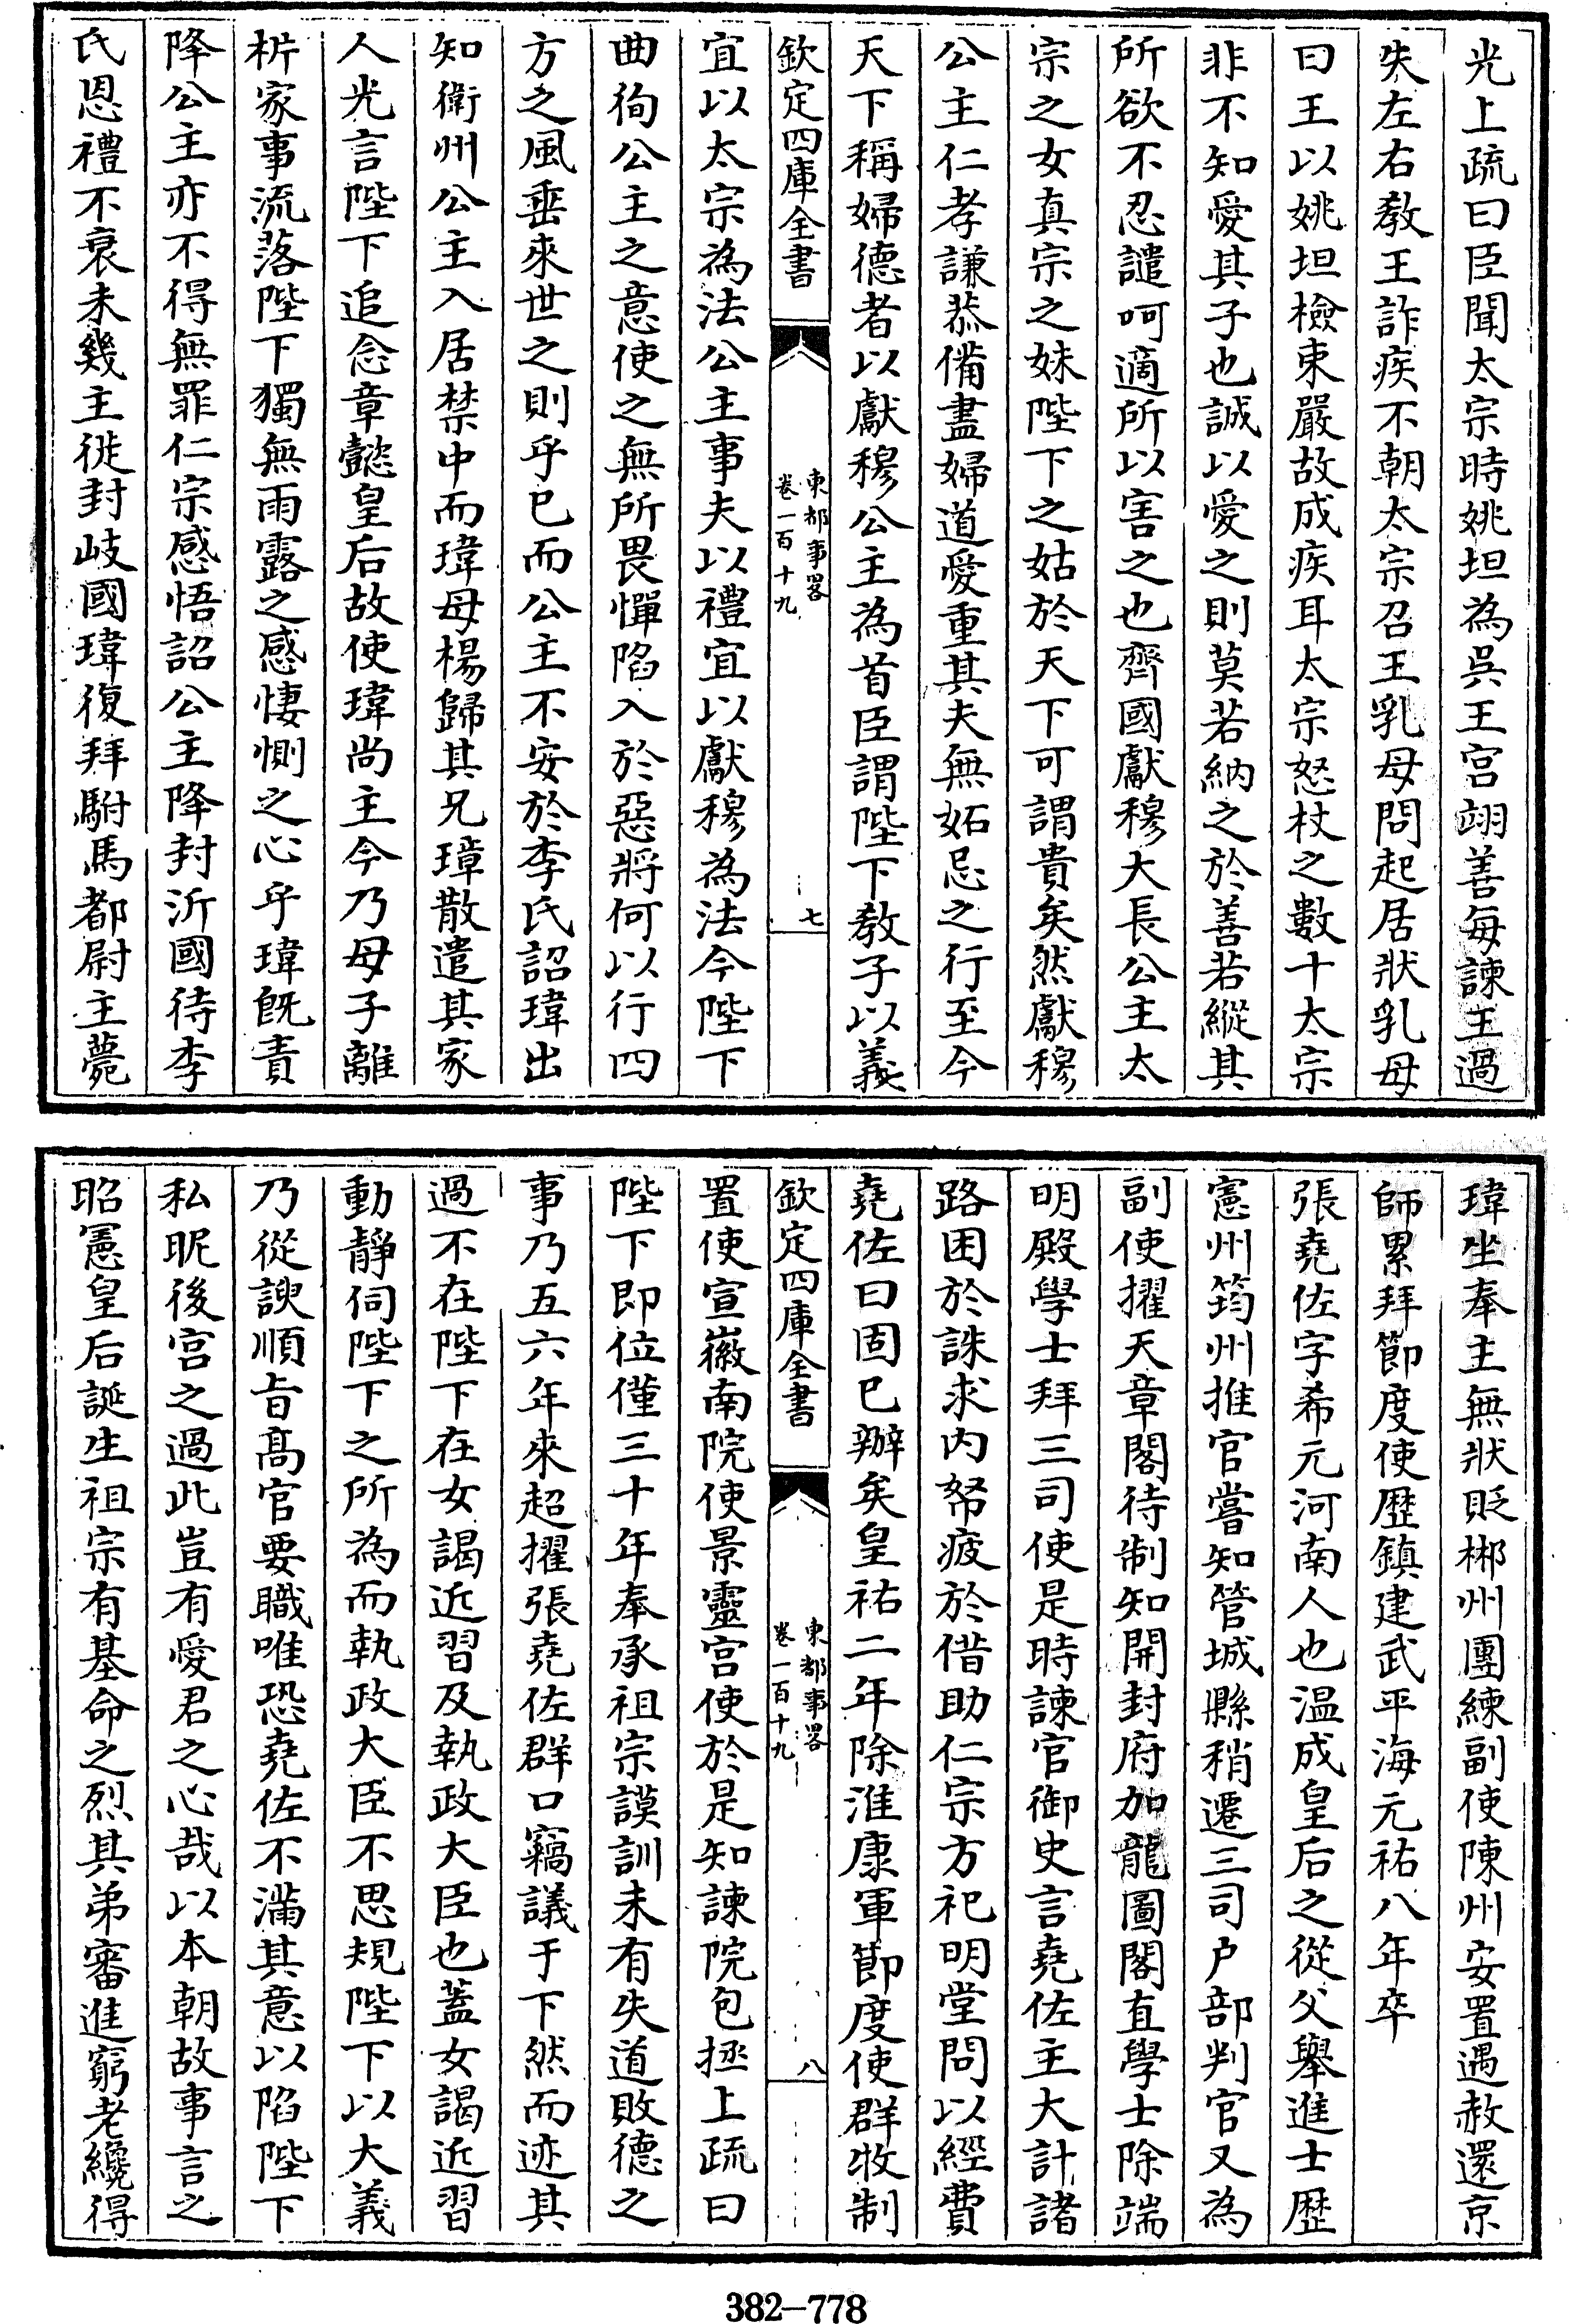 光上疏曰臣聞太宗時姚坦為吳王宮翊善每諫王過
失左右教王詐疾不朝太宗召王乳母問起居狀乳母
曰王以姚坦檢束嚴故成疾耳太宗怒杖之數十太宗
非不知愛其子也誠以愛之則莫若納之於善若縱其
所欲不忍譴呵適所以害之也齊國獻穆大長公主太
宗之女真宗之妹陛下之姑於天下可謂貴矣然獻穆
公主仁孝謙恭備盡婦道愛重其夫無妬忌之行至今
天下稱婦德者以獻穆公主為首臣謂陛下教子以義
欽定四庫全書
東都事畧
卷一百十九
七
宜以太宗為法公主事夫以禮宜以獻穆為法今陛下
曲徇公主之意使之無所畏憚陷入於惡將何以行四
方之風垂來世之則乎已而公主不安於李氏詔瑋出
知衛州公主入居禁中而瑋母楊歸其兄璋散遣其家
人光言陛下追念章懿皇后故使瑋尚主今乃母子離
析家事流落陛下獨無雨露之感悽惻之心乎瑋既責
降公主亦不得無罪仁宗感悟詔公主降封沂國待李
氏恩禮不衰未幾主徙封岐國瑋復拜駙馬都尉主薨
瑋坐奉主無狀貶郴州團練副使陳州安置遇赦還京
師累拜節度使歷鎮建武平海元祐八年卒
張堯佐字希元河南人也温成皇后之從父舉進士歷
憲州筠州推官嘗知管城縣稍遷三司户部判官又為
副使擢天章閣待制知開封府加龍圖閣直學士除端
明殿學士拜三司使是時諫官御史言堯佐主大計諸
路困於誅求内帑疲於借助仁宗方祀明堂問以經費
堯佐曰固已辦矣皇祐二年除淮康軍節度使群牧制
欽定四庫全書
東都事畧
卷一百十九
八
置使宣徽南院使景靈宮使於是知諫院包拯上疏曰
陛下即位僅三十年奉承祖宗謨訓未有失道敗德之
事乃五六年來超擢張堯佐群口竊議于下然而迹其
過不在陛下在女謁近習及執政大臣也蓋女謁近習
動靜伺陛下之所為而執政大臣不思規陛下以大義
乃從諛順旨高官要職唯恐堯佐不滿其意以陷陛下
私昵後宮之過此豈有愛君之心哉以本朝故事言之
昭憲皇后誕生祖宗有基命之烈其弟審進窮老纔得
382-778